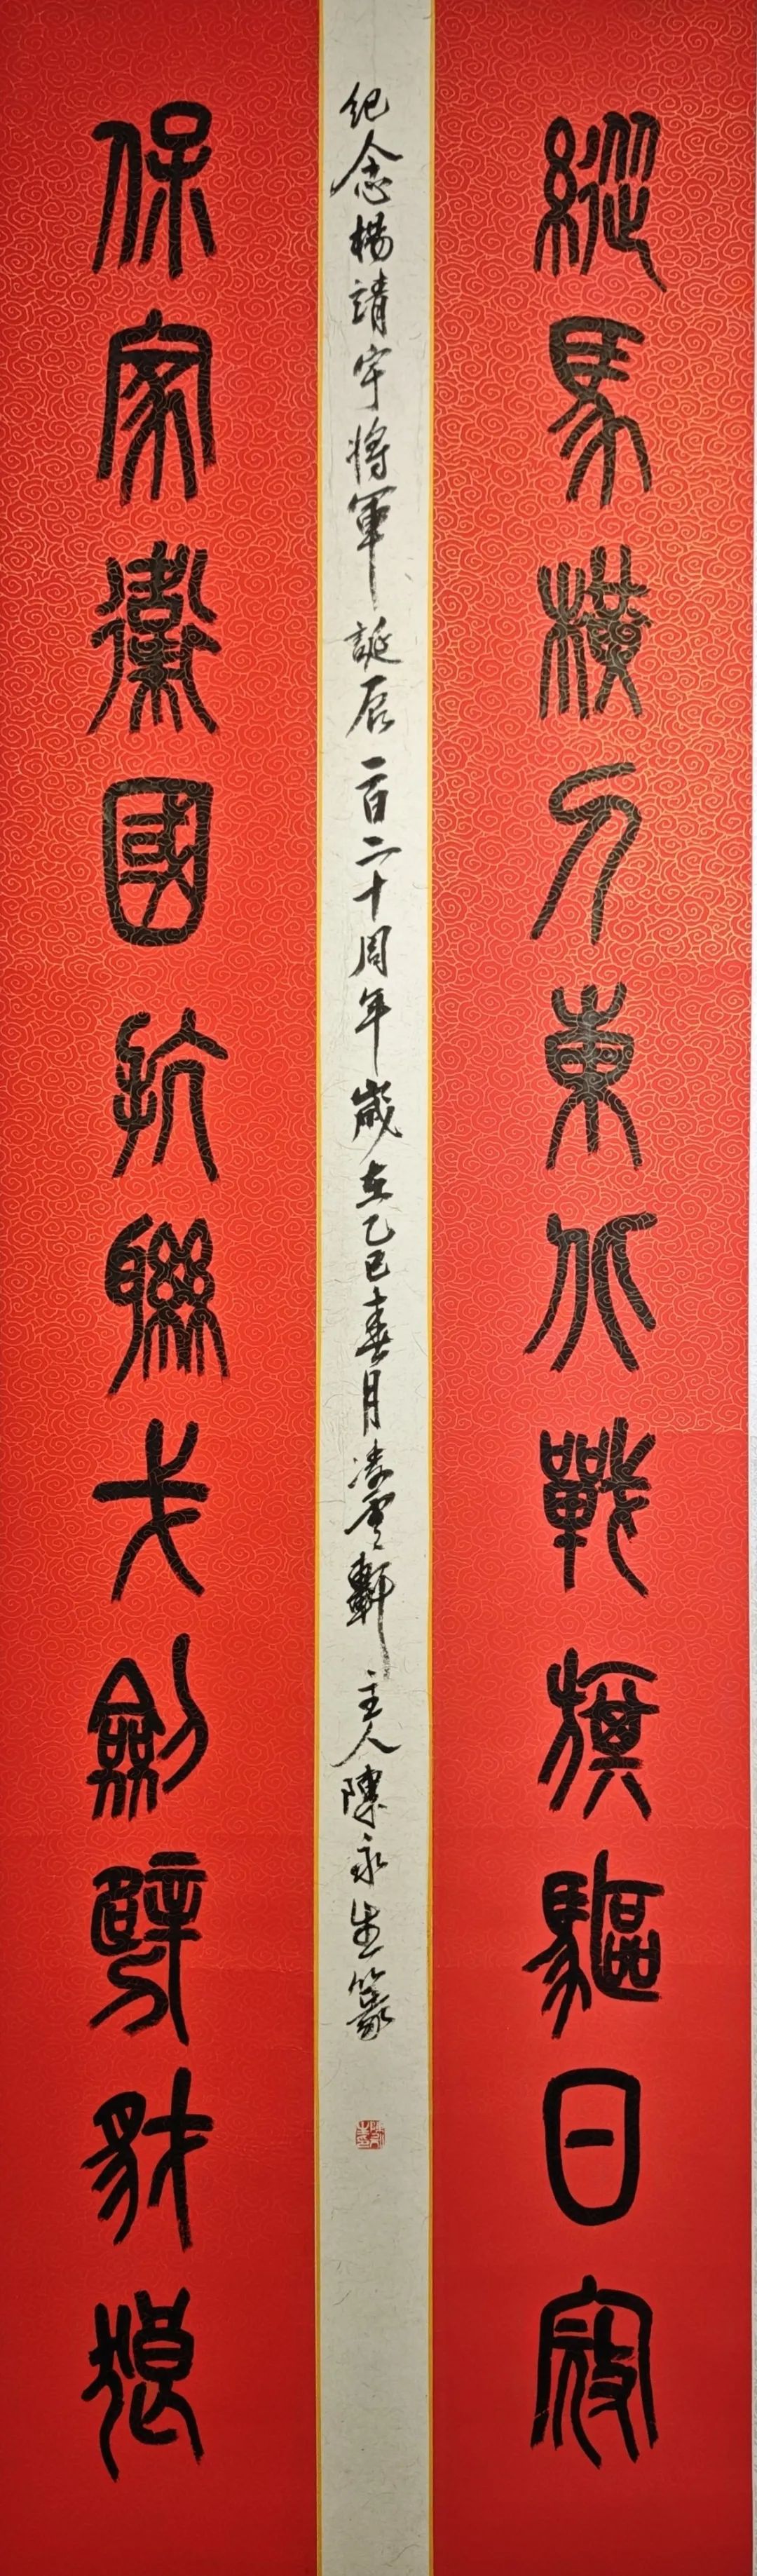 縱馬橫刀東北戰旗驅日寇
保家衞國抗聯戈劍劈豺狼
纪念楊靖宇將軍誕辰一百二十周年歲在乙巳春月凌雲軒主人陳永生篆